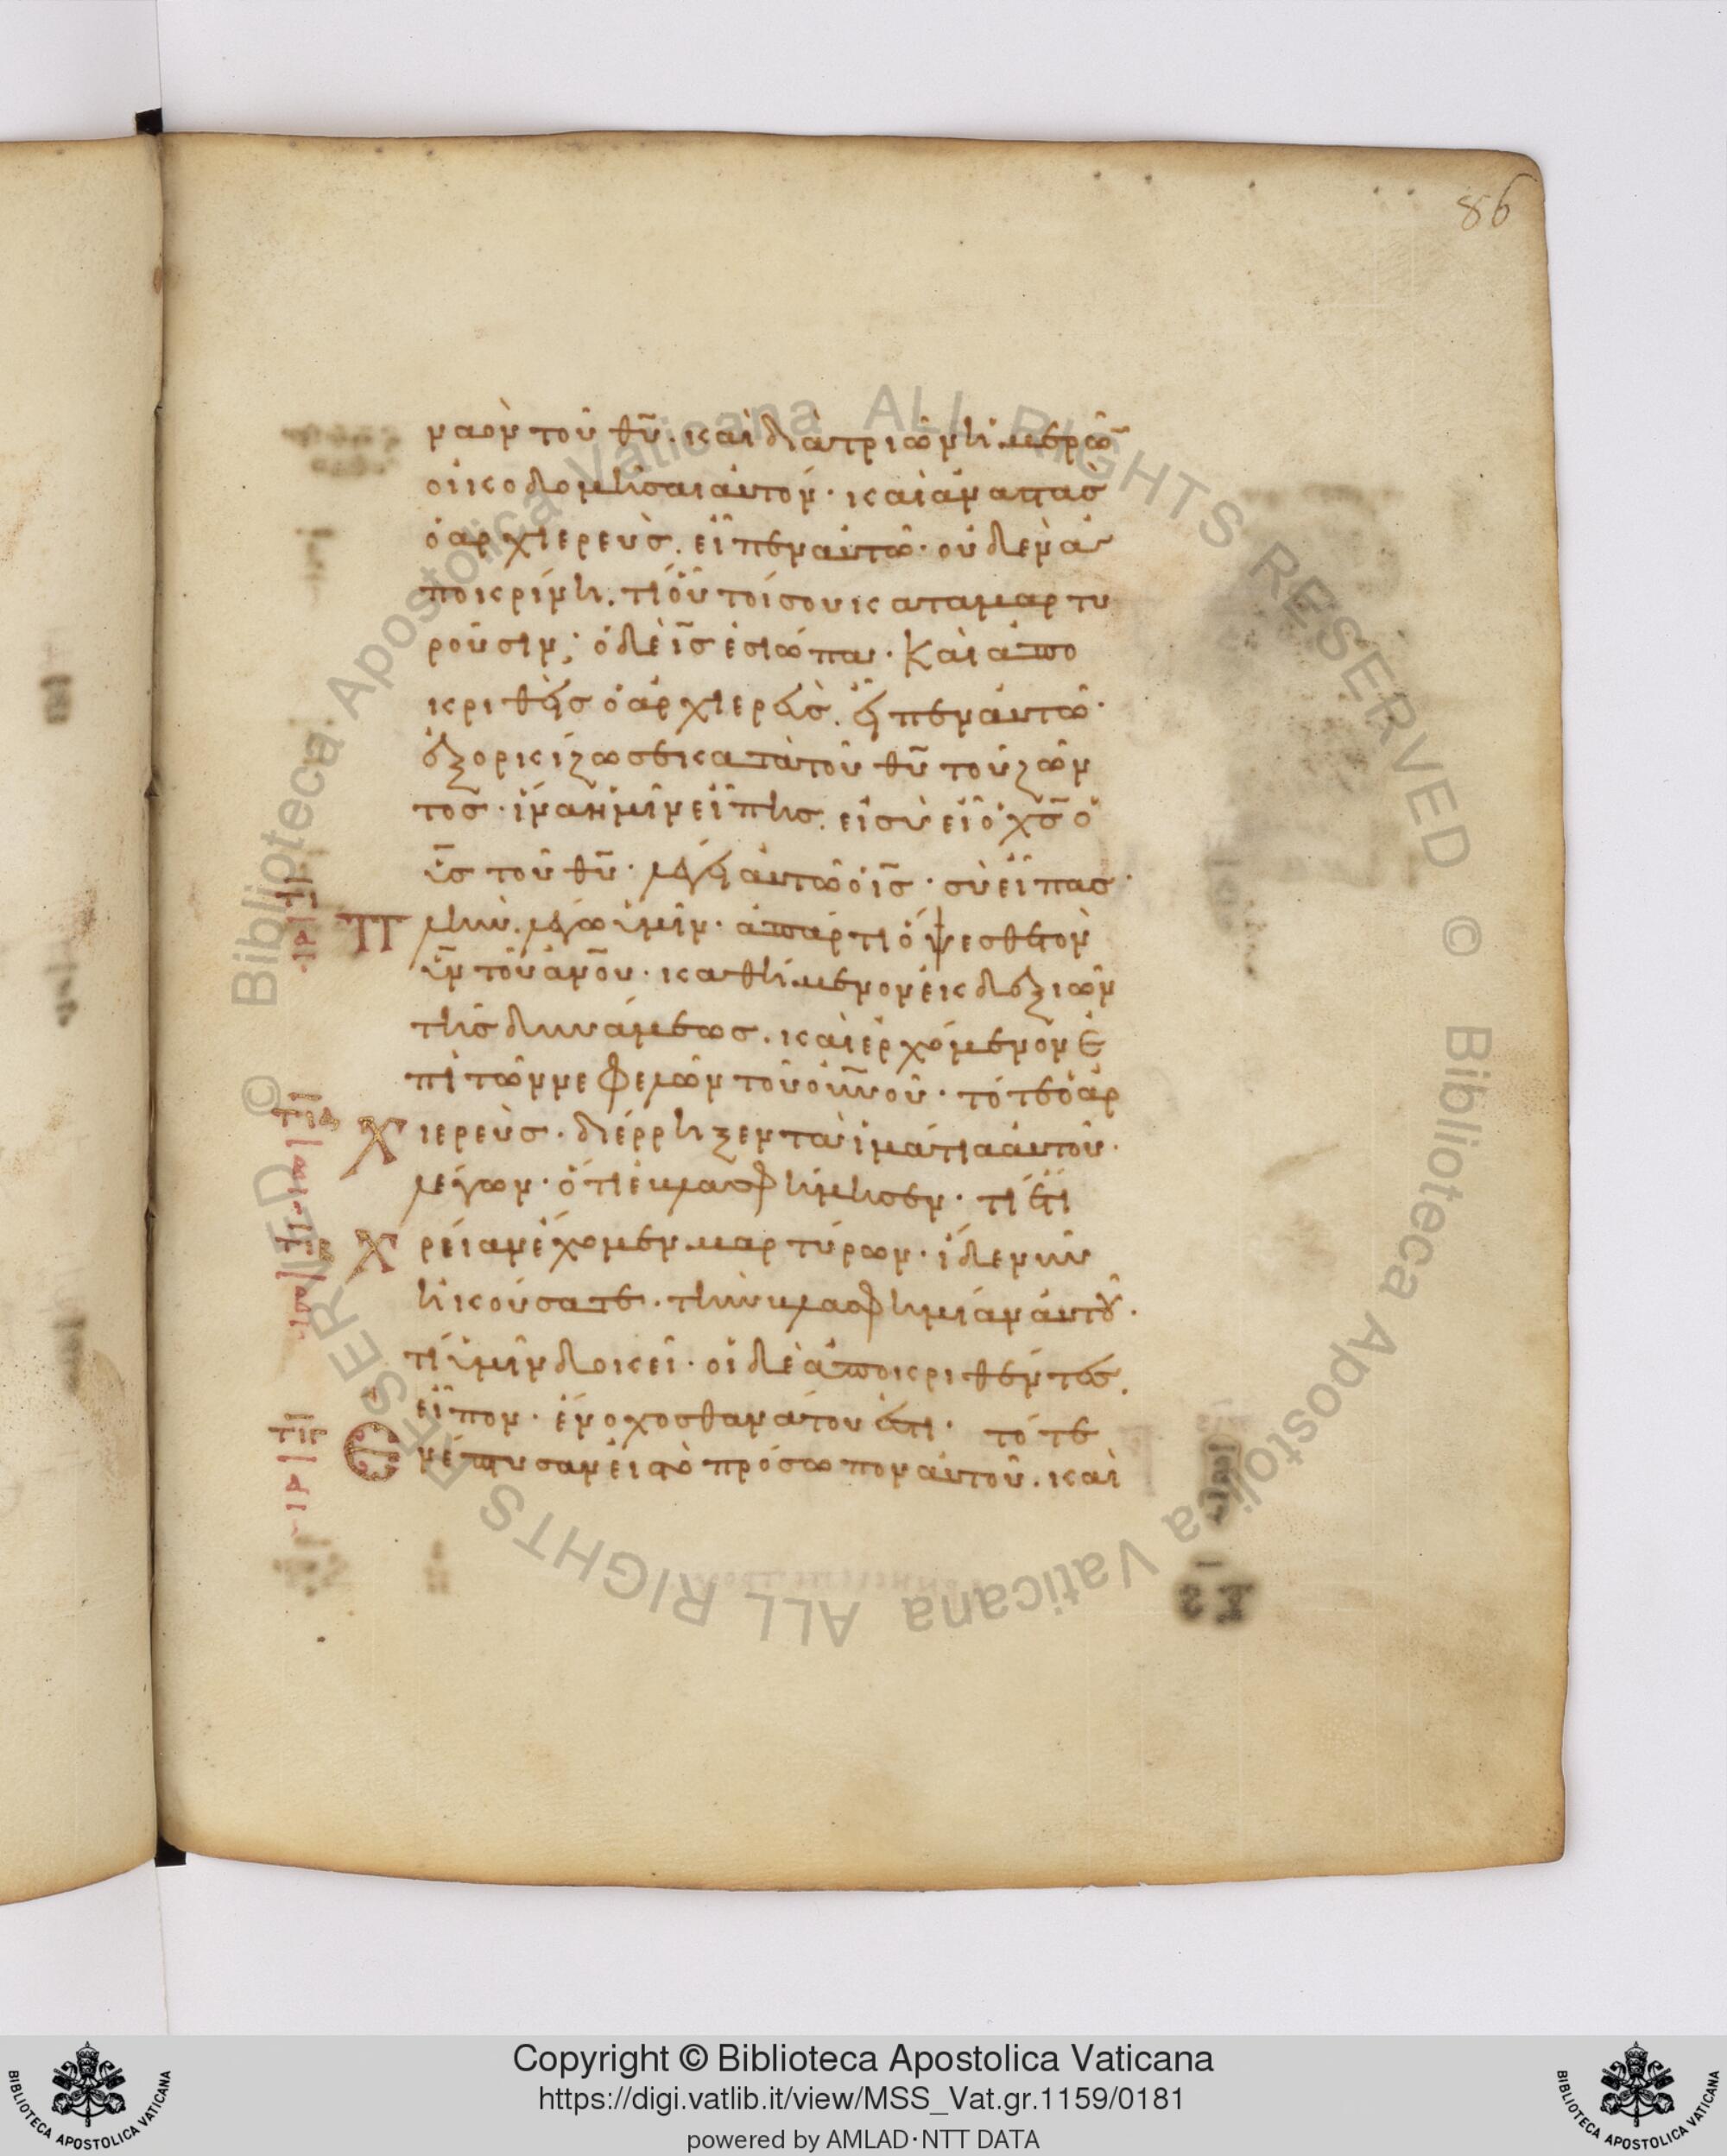 86
ναὸν τοῦ θυ̅. καὶ διὰ τριῶν ἡμερῶ̅
οἰκοδομῆσαι αὐτόν· καὶ ἀναστὰσ
ὁ ἀρχιερεὺσ. εἶπεν αὐτῶ· οὐδὲν ἀ
ποκρίνη. τί οὗτοί σου καταμαρτυ
ροῦσιν; ὁ δὲ ισ̅ ἐσιώπα· Καὶ ἀπο
κριθεὶσ ὁ ἀρχιερεὺσ. εἶπεν αὐτῶ·
ἐξορκίζω σε κατὰ τοῦ θυ̅ τοῦ ζῶν
τοσ· ἵνα ἡμῖν εἴπησ. εἰ σὺ εἶ ὁ χσ̅ ὁ
υσ̅ τοῦ θυ̅· λέγει αὐτῶ ὁ ισ̅· σὺ εἶπασ·
πλὴν λέγω ὑμῖν· ἀπάρτι ὄψεσθε τὸν
υν̅ τοῦ ανου̅· καθήμενον ἐκ δεξιῶν
τῆσ δυνάμεωσ. καὶ ἐρχόμενον ἐ
πὶ τῶν νεφελῶν τοῦ οὐνου̅· τότε ὁ ἀρ
χιερεὺσ· διέρρηξεν τὰ ἱμάτια αὐτοῦ·
λέγων· ὅτι ἐβλασφήμησεν· τί ἔτι
χρείαν ἔχομεν μαρτύρων· ἴδε νῦν
ἠκούσατε· τὴν βλασφημίαν αὐτοῦ·
τί ὑμῖν δοκεῖ· οἱ δὲ ἀποκριθέντεσ.
εἶπον· ἔνοχοσ θανάτου ἐστί· τότε
ἐνέπτυσαν εἰσ τὸ πρόσωπον αὐτοῦ. καὶ
Copyright © Biblioteca Apostolica Vaticana
https://digi.vatlib.it/view/MSS_Vat.gr.1159/0181
powered by AMLAD·NTT DATA